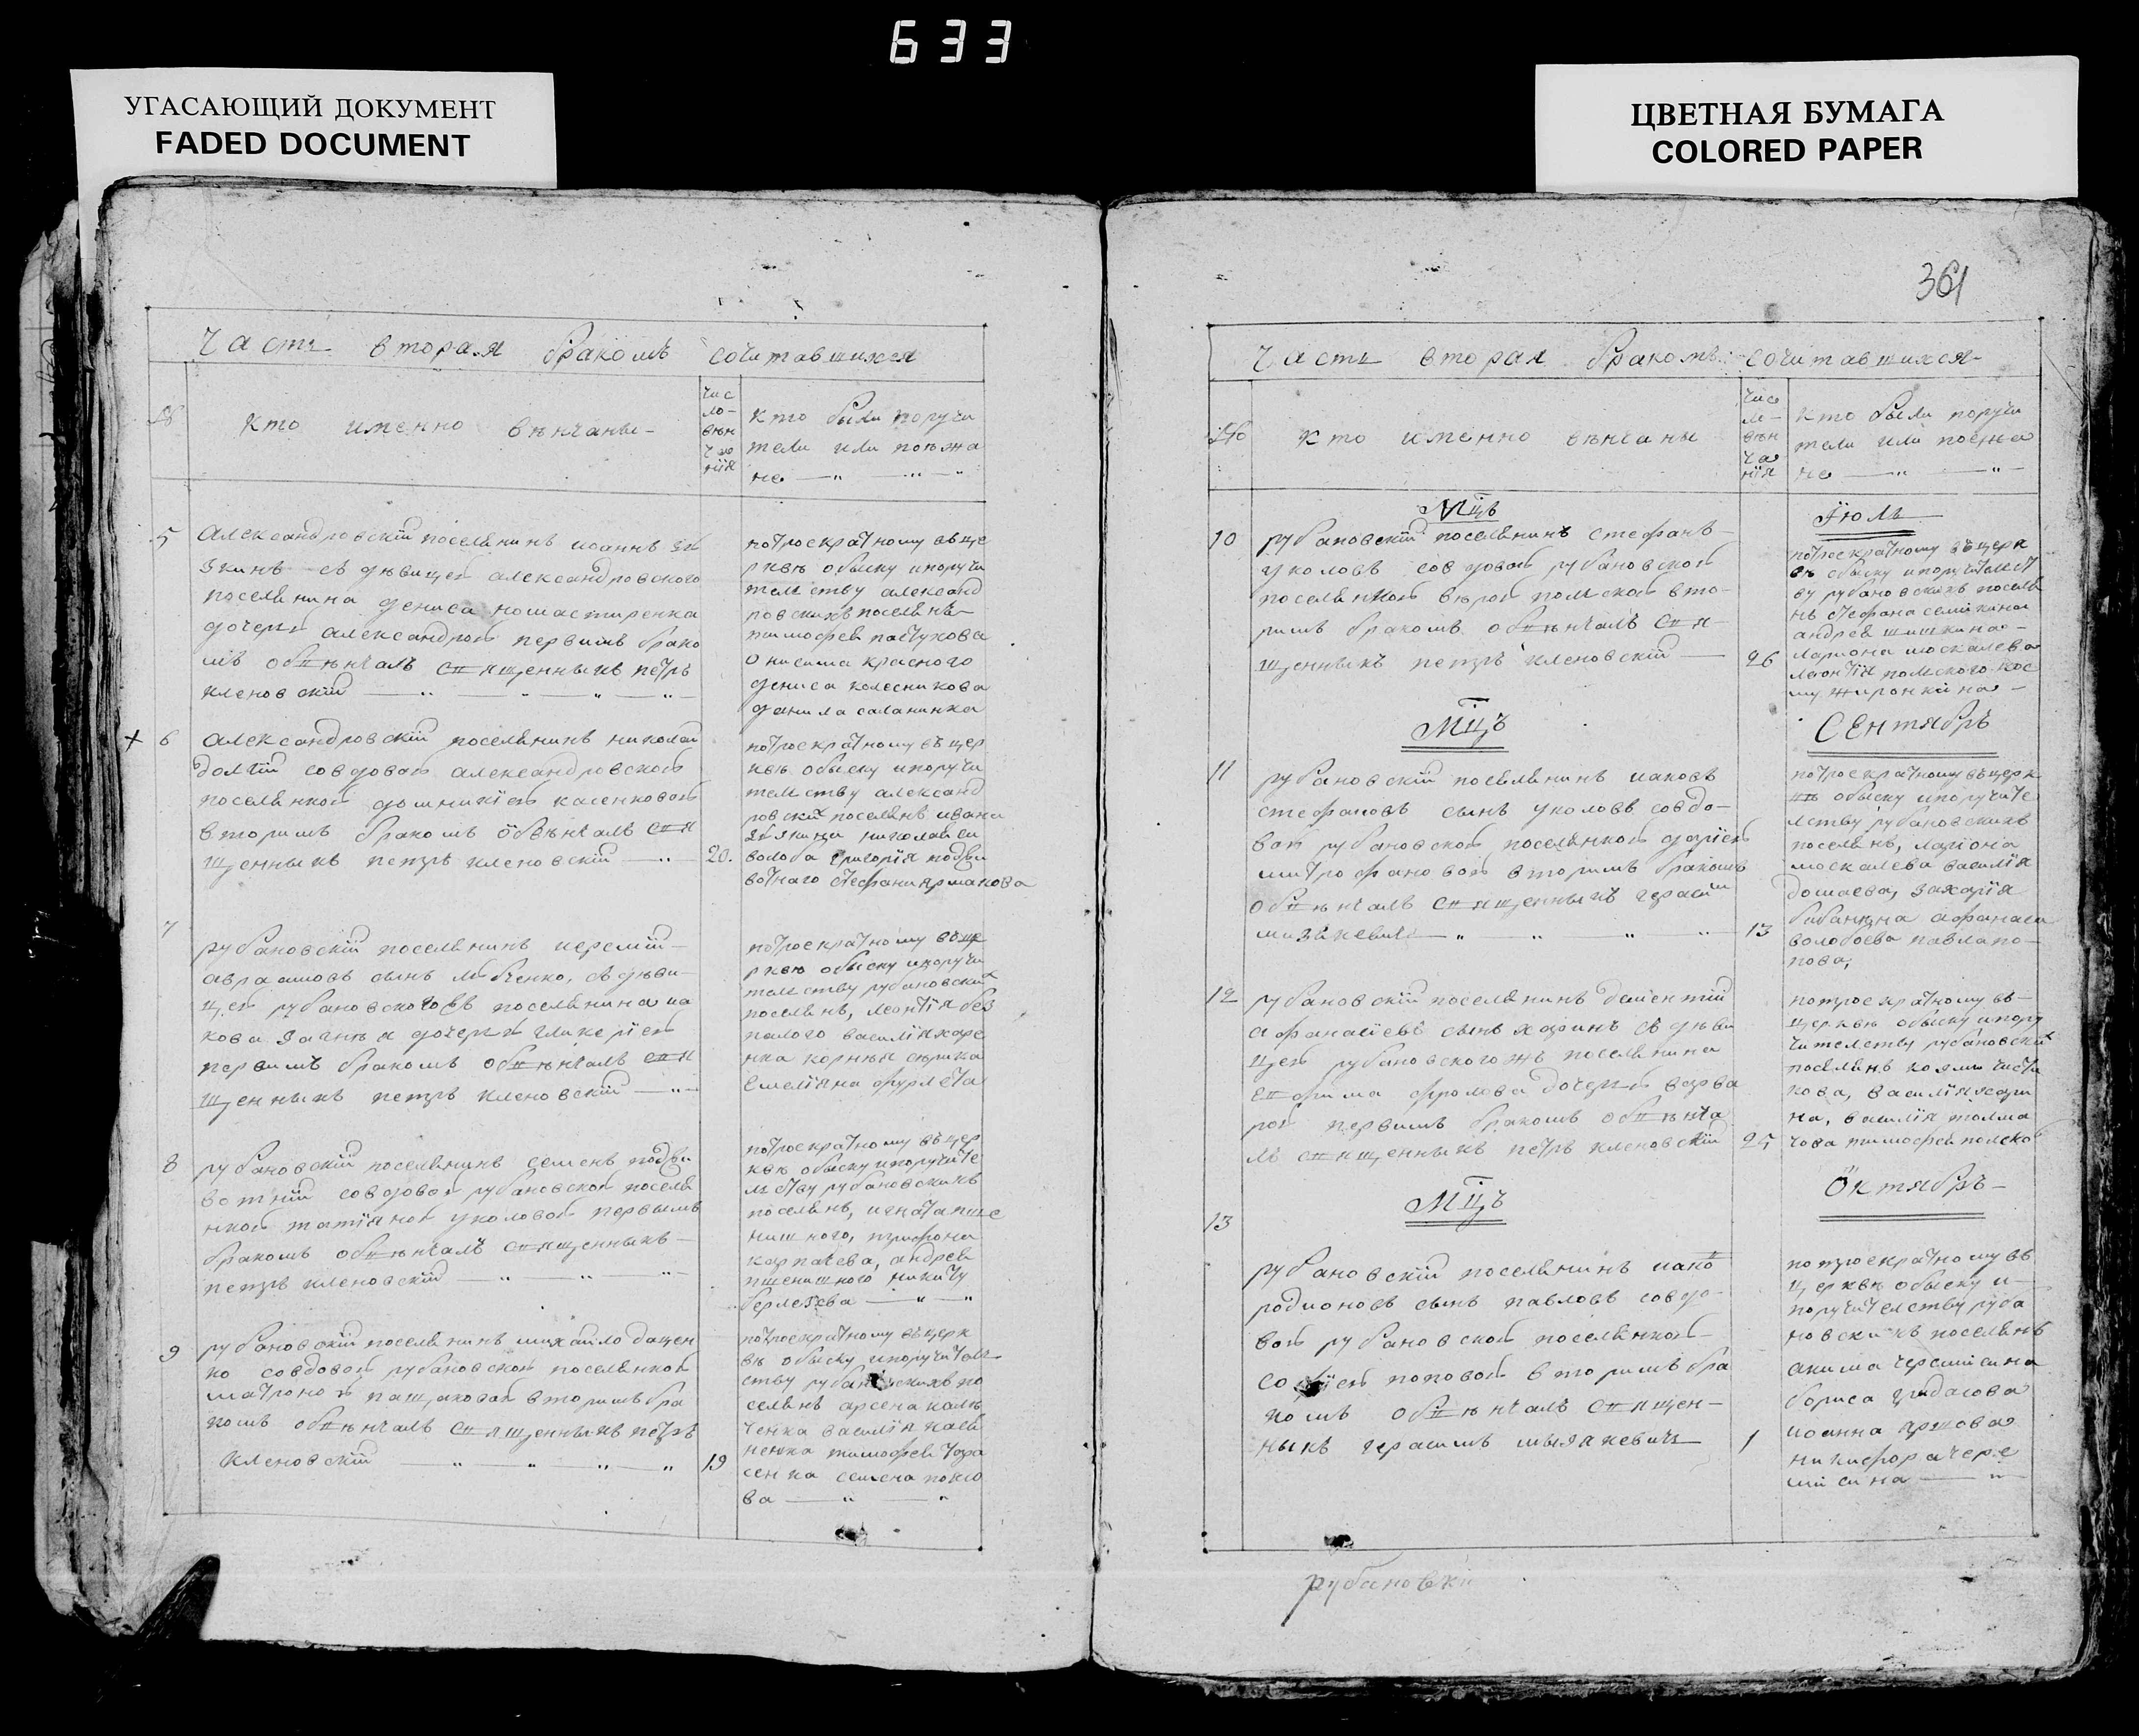 633
УГАСАЮЩИЙ ДОКУМЕНТ
FADED DOCUMENT
ЦВЕТНАЯ БУМАГА
COLORED PAPER
Часть вторая бракомъ сочитавшихся
№
кто именно вѣнчаны
Чис
ло
вѣн
ча
нія
кто были поручи
тели или поѣжа
не
5
Александровскій поселянинъ иоаннъ
съ дѣвицею александровского
поселянина дениса
дочерью александрою первымъ брако
мъ обвѣнчалъ священникъ петръ
кленовскій
потроекратному въ це
рквѣ обыску ипоручи
тельству александ
ровскихъ поселянъ
тимофея пастухова
онисима красного
дениса колесникова
данила
6
Александровскій поселянинъ николай
долгій совдовою александровскою
поселянкою домникіею касенковою
вторимъ бракомъ обвѣнчалъ свя
щенникъ петръ кленовскій
20.
потроекратному въ цер
квѣ обыску ипоручи
тельству александ
ровских поселянъ ивана
николая
григорія подви
вотнаго стефана ярмакова
7
рубановскій поселянинъ иеремій
авраамовъ сынъ съ дѣви
цею рубановскогожъ поселянина иа
кова дочерью гликеріею
первимъ бракомъ обвѣнчалъ свя
щенникъ петръ кленовскій
потроекратному въ це
рквѣ обыску ипоручи
тельству рубановских
поселянъ, леонтія без
палого василія харе
нка корнея сѣрика
емеліяна
8
рубановскій поселянинъ семенъ подви
вотній совдовою рубановскою поселя
нкою татіяною уколовою первымъ
бракомъ обвѣнчалъ священникъ
петръ кленовскій
потроекратному въ цер
квѣ обыску ипоручите
льству рубановскихъ
поселянъ, игната пше
нишного, трифона
карпачева, андрея
пшенишного никиту
9
рубановскій поселянинъ михайло дацен
ко совдовою рубановскою поселянкою
матроною вторимъ бра
комъ обвѣнчалъ священникъ петръ
кленовскій
19
потроекратному въ церк
вѣ обыску ипоручитель
ству по
селянъ арсена
василія
тимофея
семена
ва
361
Часть вторая бракомъ сочитавшихся
№
кто именно вѣнчаны
Чис
ло
вѣн
ча
нія
кто были поручи
тели или поежа
не
Мцъ
Іюль
10
рубановскій поселянинъ стефанъ
уколовъ совдовою рубановскою
поселянкою вѣрою полскою вто
римъ бракомъ обвѣнчалъ свя
щенникъ петръ кленовскій
26
потроекратному въ церк
вѣ обыску ипоручительст
ву рубановскихъ поселя
нъ стефана семикина
андрея шишкина
ларіона москалева
леонтія полского кос
му жиронкина
Мцъ
Сентябрь
11
рубановскій поселянинъ иаковъ
стефановъ сынъ уколовъ совдо
вою рубановскою поселянкою даріею
митрофановою вторимъ бракомъ
обвѣнчалъ священникъ герасим
13
потроекратному въ церк
вѣ обыску ипоручите
льству рубановскихъ
поселянъ, ларіона
москалева василія
захарія
афанасія
волобоева павла по
пова,
12
рубановскій поселянинъ дементій
афанасіевъ сынъ харинъ съ дѣви
цею рубановскогожъ поселянина
ефима фролова дочерью варва
рою первимъ бракомъ обвѣнча
лъ священникъ петръ кленовскій
25
потроекратному въ
церквѣ обыску ипору
чителству рубановских
поселянъ
кова, василія хари
на, василія толма
чова тимофея полской
Мцъ
Октябрь
13
рубановскій поселянинъ иако
родионовъ сынъ павловъ совдо
вою рубановскою поселянкою
поповою вторимъ бра
комъ обвѣнчалъ священ
никъ герасимъ мызякевичь
1
потроекратному въ
церквѣ обыску и
поручителству руба
новскихъ поселянъ
акима черемисина
бориса
иоанна
никифора чере
мисина
рубановскій